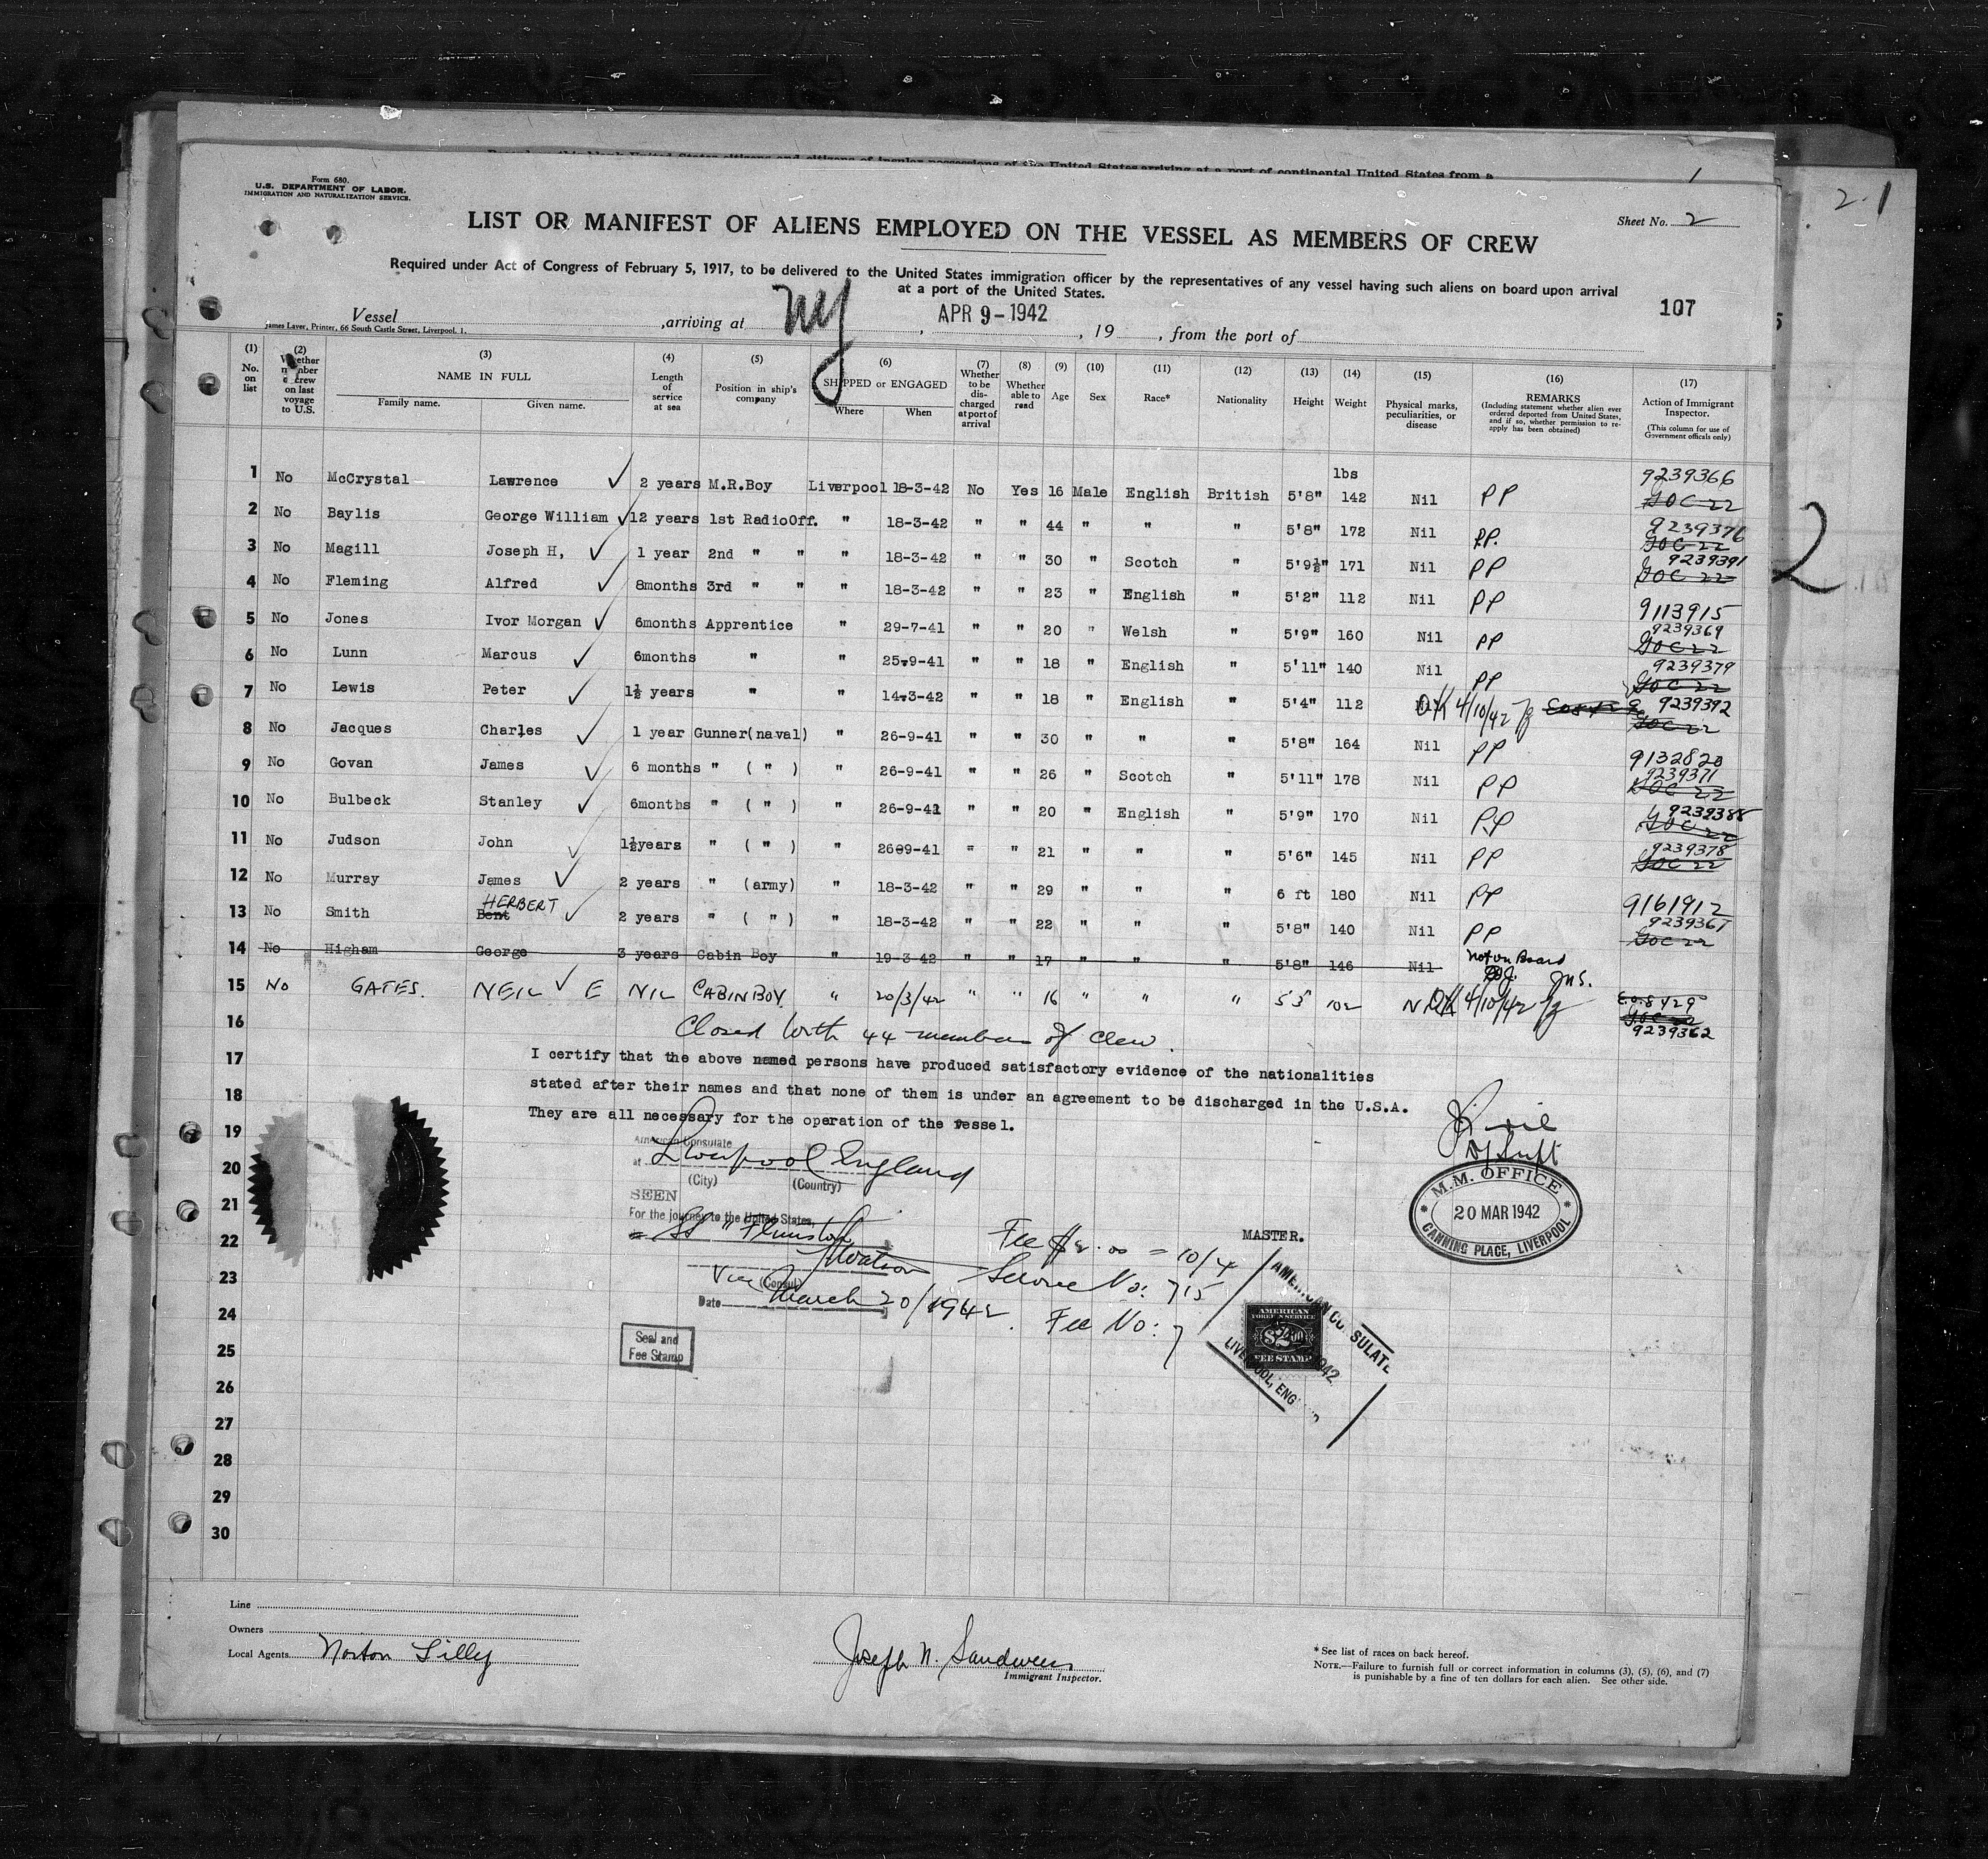 Form 680.
U.S. DEPARTMENT OF LABOR.
IMMIGRATION AND NATURALIZATION SERVICE.
1
2.1
Sheet No. 2
LIST OR MANIFEST OF ALIENS EMPLOYED ON THE VESSEL AS MEMBERS OF CREW
Required under Act of Congress of February 5, 1917, to be delivered to the United States immigration officer by the representatives of any vessel having such aliens on board upon arrival
at a port of the United States.
107
Vessel , arriving at NY , APR 9 - 1942 , 19 , from the port of
James Laver, Printer, 66 South Castle Street, Liverpool, 1.
(1) No. on list (2) Whether member of crew on last voyage to U.S. (3) NAME IN FULL Family name. Given name. (4) Length of service at sea (5) Position in ship's company (6) SHIPPED or ENGAGED Where When (7) Whether to be discharged at port of arrival (8) Whether able to read (9) Age (10) Sex (11) Race* (12) Nationality (13) Height (14) Weight (15) Physical marks, peculiarities, or disease (16) REMARKS (Including statement whether alien ever ordered deported from United States, and if so, whether permission to re-apply has been obtained) (17) Action of Immigrant Inspector. (This column for use of Government officials only)
1 No McCrystal Lawrence 2 years M.R.Boy Liverpool 18-3-42 No Yes 16 Male English British 5'8" lbs 142 Nil PP 9239366 GOC 22
2 No Baylis George William 12 years 1st RadioOff. " 18-3-42 " " 44 " " " 5'8" 172 Nil P.P. 9239376 GOC 22
3 No Magill Joseph H, 1 year 2nd " " " 18-3-42 " " 30 " Scotch " 5'9½" 171 Nil PP 9239391 GOC 22
4 No Fleming Alfred 8months 3rd " " " 18-3-42 " " 23 " English " 5'2" 112 Nil PP 9113915
5 No Jones Ivor Morgan 6months Apprentice " 29-7-41 " " 20 " Welsh " 5'9" 160 Nil PP 9239369 GOC 22
6 No Lunn Marcus 6months " " 25-9-41 " " 18 " English " 5'11" 140 Nil PP 9239379 GOC 22
7 No Lewis Peter 1½ years " " 14-3-42 " " 18 " English " 5'4" 112 OK 4/10/42 9239392 GOC 22
8 No Jacques Charles 1 year Gunner(naval) " 26-9-41 " " 30 " " " 5'8" 164 Nil PP 9132820
9 No Govan James 6 months " ( " ) " 26-9-41 " " 26 " Scotch " 5'11" 178 Nil PP 9239371 GOC 22
10 No Bulbeck Stanley 6months " ( " ) " 26-9-41 " " 20 " English " 5'9" 170 Nil PP 9239388 GOC 22
11 No Judson John 1½years " ( " ) " 2609-41 " " 21 " " " 5'6" 145 Nil PP 9239378 GOC 22
12 No Murray James 2 years " (army) " 18-3-42 " " 29 " " " 6 ft 180 Nil PP 9161912
13 No Smith Bent HERBERT 2 years " ( " ) " 18-3-42 " " 22 " " " 5'8" 140 Nil PP 9239367 GOC 22
14 No Higham George 3 years Cabin Boy " 19-3-42 " " 17 " " " 5'8" 146 Nil Not on Board
15 No GATES. NEIL E NIL CABIN BOY " 20/3/42 " " 16 " " " 5'3" 102 OK 4/10/42 GOC 22 9239362
16 Closed with 44 members of crew.
17 I certify that the above named persons have produced satisfactory evidence of the nationalities
18 stated after their names and that none of them is under an agreement to be discharged in the U.S.A.
19 They are all necessary for the operation of the vessel.
20
21
22
23
24
25
26
27
28
29
30
American Consulate
at Liverpool England
(City) (Country)
SEEN
For the journey to the United States,
SS "
Vice (Consul)
Date March 20/1942
Seal and
Fee Stamp
Fee $2.00 = 10/4
Service No: 715
Fee No: 7
MASTER.
M.M. OFFICE
20 MAR 1942
CANNING PLACE, LIVERPOOL
AMERICAN
FOREIGN SERVICE
$2.00
FEE STAMP
AMERICAN CONSULATE
LIVERPOOL, ENG
2
Line
Owners
Local Agents Norton Lilly
Joseph N.
Immigrant Inspector.
* See list of races on back hereof.
NOTE.—Failure to furnish full or correct information in columns (3), (5), (6), and (7)
is punishable by a fine of ten dollars for each alien. See other side.